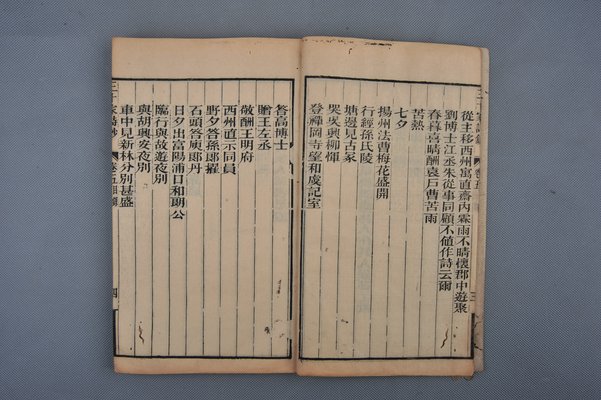 從主移西州寓直齋內霖雨不晴懷郡中遊聚
劉博士江丞朱從事同顧不値作詩云爾
春暮喜晴酬袁戶曹苦雨
苦熱
七夕
揚州法曹梅花盛開
行經孫氏陵
塘邊見古冢
哭吳興柳惲
登禪岡寺望和虞記室
答高博士
贈王左丞
敬酬王明府
西州直示同員
野夕答孫郎擢
石頭答庾郎丹
日夕出富陽浦口和朗公
臨行與故遊夜別
與胡興安夜別
車中見新林分別甚盛
卷五目錄
四